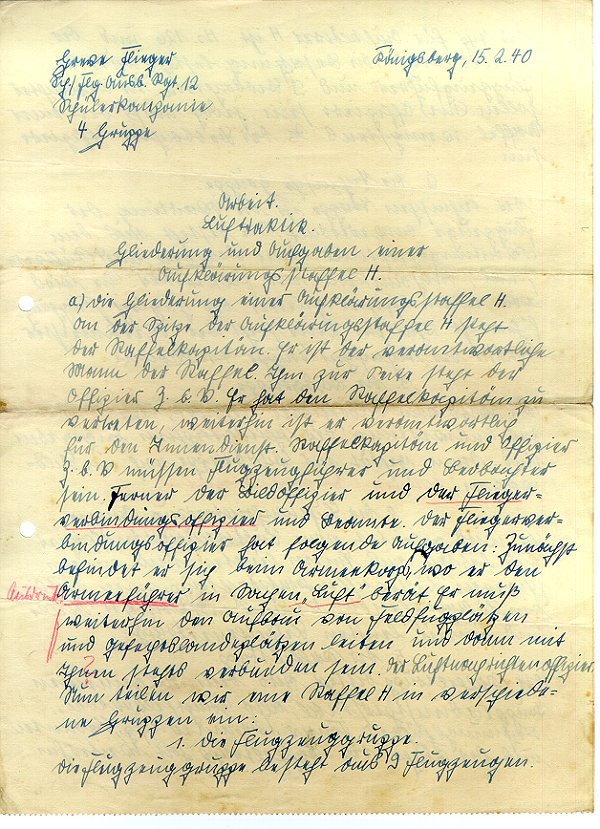 Greve Flieger
Sch/Flg. Ausb. Rgt. 12
Schülerkompanie
4 Gruppe
Königsberg, 15.2.40
Arbeit.
Lufttaktik.
Gliederung und Aufgaben einer
Aufklärungsstaffel H.
a) Die Gliederung einer Aufklärungsstaffel H.
An der Spitze der Aufklärungsstaffel H steht
der Staffelkapitän. Er ist der verantwortliche
Mann der Staffel. Ihm zur Seite steht der
Offizier z. b. V. Er hat den Staffelkapitän zu
vertreten, weiterhin ist er verantwortlich
für den Innendienst. Staffelkapitän und Offizier
z. b. V müssen Flugzeugführer und Beobachter
sein. Ferner der Bildoffizier und der Flieger-
verbindungsoffizier und Beamte. Der Fliegerver-
bindungsoffizier hat folgende Aufgaben: Zunächst
befindet er sich beim Armeekorps, wo er den
Ausdruck Armeeführer in Sachen „Luft" berät Er muß
weiterhin den Aufbau von Feldflugplätzen
und Gefechtslandeplätzen leiten und dann mit
Ihnen stehts verbunden sein. Der Luftnachrichtenoffizier.
Nun teilen wir eine Staffel H in verschiede-
ne Gruppen ein:
1. Die Flugzeuggruppe.
Die Flugzeuggruppe besteht aus 9 Flugzeugen.